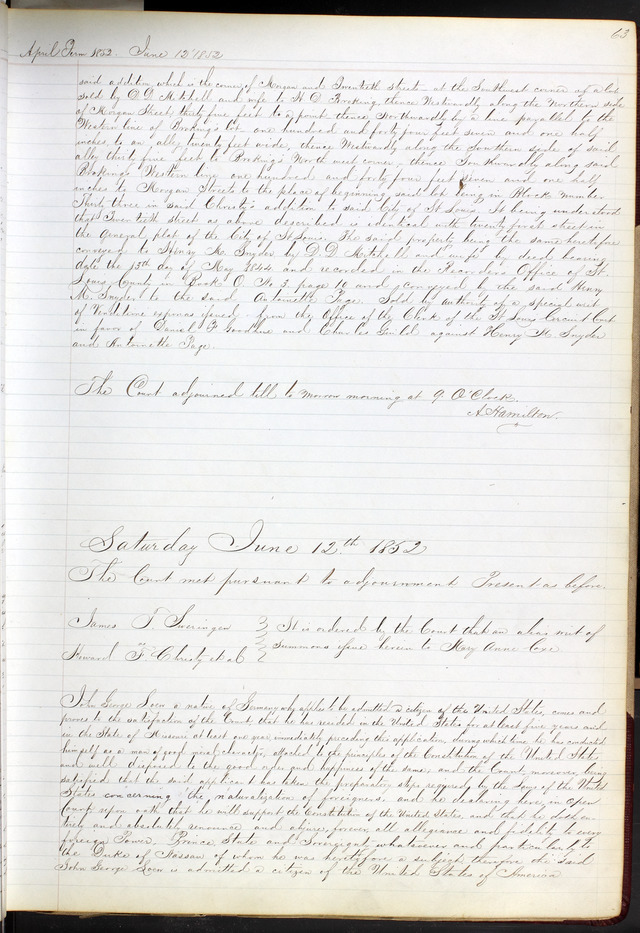 63
April Term 1852. June 12 1852
said addition, which is the corner of Morgan and Twentieth street at the Southwest corner of a lot
sold by D D Mitchell and wife to H D Broking, thence Westwardly along the Northern side
of Morgan Street, thirty five feet to a point, thence Northwardly by a line parallel to the
Western line of Broking's lot one hundred and forty four feet seven and one half
inches, to an alley twenty feet wide, thence Westwardly along the Southern side of said
alley thirty five feet to Broking's North west corner, thence Southwardly along said
Broking's Western line one hundred and forty four feet seven and one half
inches to Morgan Street to the place of beginning said lot being in Block number
Thirty three in said Christy's addition to said City of St Louis. It being understood
that Twentieth street as above described is identical with twenty first street in
the General plat of the City of St Louis. The said property being the same heretofore
conveyed to Henry M. Snyder by D. D. Mitchell and wife by deed bearing
date the 13th day of May 1844 and recorded in the Recorders Office of St.
Louis County in Book O. No 3. page 10 and conveyed by the said Henry
M. Snyder to the said Antoinette Page. Sold by authority of a special writ
of Venditioni exponas issued from the Office of the Clerk of the St Louis Circuit Court
in favor of Daniel F and Charles Guild against Henry M. Snyder
and Antoinette Page.
The Court adjourned till to morrow morning at 9 O'Clock.
A. Hamilton.
Saturday June 12th 1852
The Court met pursuant to adjournment Present as before.
James T. Swearingen
vs
Howard F. Christy et al
It is ordered by the Court that an alias writ of
Summons issue herein to Mary Anne Coxe
John George Loen a native of Germany who applies to be admitted a citizen of the United States, comes and
proves to the satisfaction of the Court, that he has resided in the United States for at least five years and
in the State of Missouri at least one year immediately preceding this application, during which time he has conducted
himself as a man of good moral character, attached to the principles of the Constitution of the United States,
and well disposed to the good order and happiness of the same, and the Court, moreover, being
satisfied that the said applicant has taken the preparatory steps required by the laws of the United
States concerning the naturalization of foreigners and he declaring here, in open
Court upon oath that he will support the Constitution of the United States, and that he doth en-
tirely and absolutely renounce and abjure, forever, all allegiance and fidelity to every
foreign Power, Prince, State and Sovereignty whatsoever and particularly to
the Duke of Nassau of whom he was heretofore a subject therefore the said
John George Loen is admitted a citizen of the United States of America